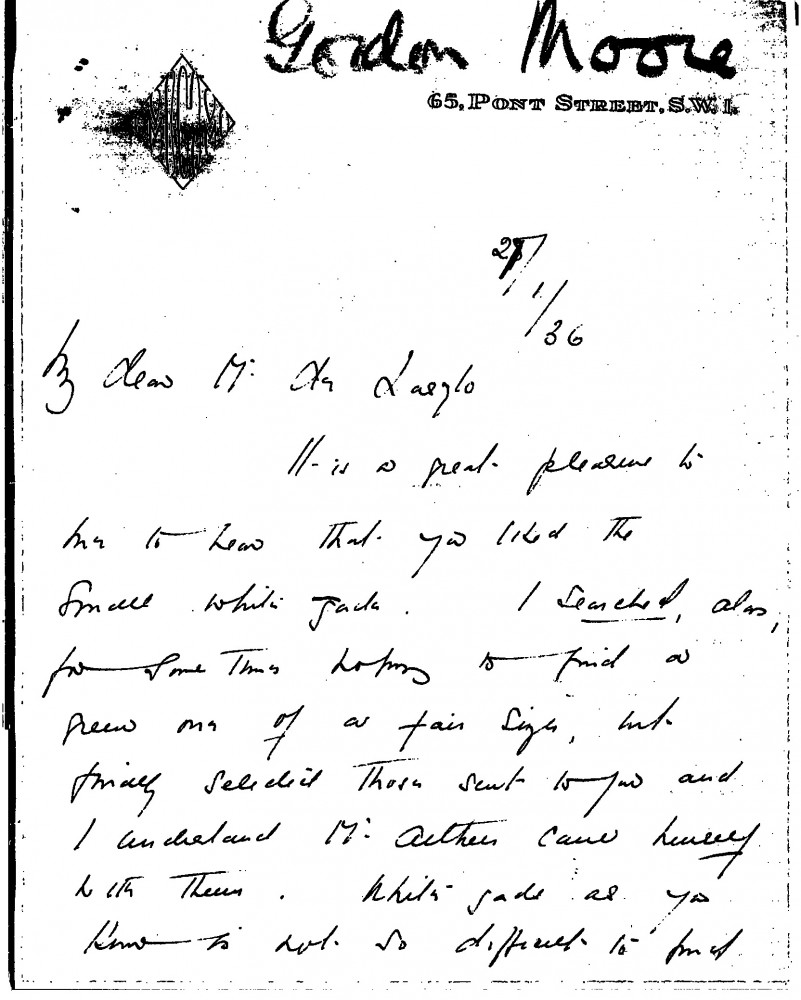 Gordon Moore
65, PONT STREET, S.W.1.
/1/36
My dear Mr de Laszlo
It is a great pleasure to
me to hear that you liked the
small white jade. I searched, alas,
for some time hoping to find a
green one of a fair size, but
finally selected those sent to you and
I understand Mr. came himself
with them. White jade as you
know is not so difficult to find